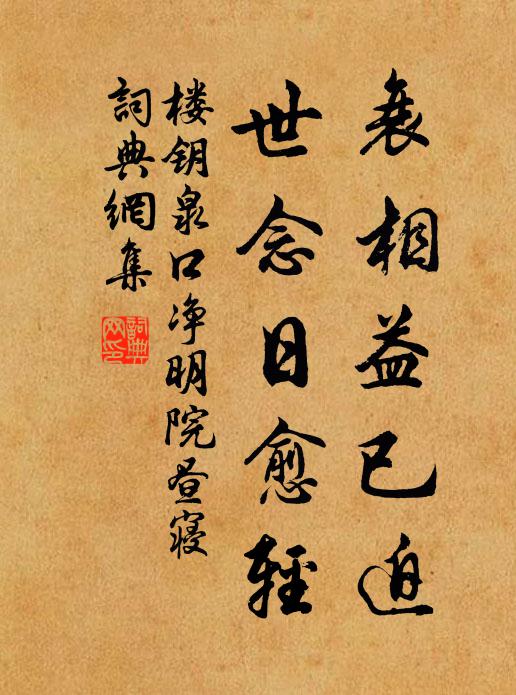 衰相益已迫
世念日愈輕
楼钥泉口净明院昼寝
詞典網集
詞典网印